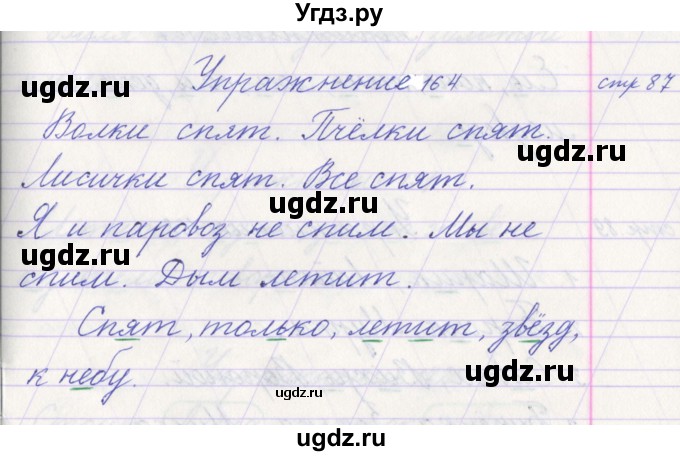 Угдз.ру
Упражнение 164 стр 87
ugdz.ru ugdz.ru
Волки спят. Пчёлки спят.
ugdz.ru
Лисички спят. Все спят.
ugdz.ru
Я и паровоз не спим. Мы не
ugdz.ru
спим. Дым летит.
ugdz.ru
Спят, только, летит, звёзд,
ugdz.ru
к небу.
ugdz.ru ugdz.ru
ugdz.ru